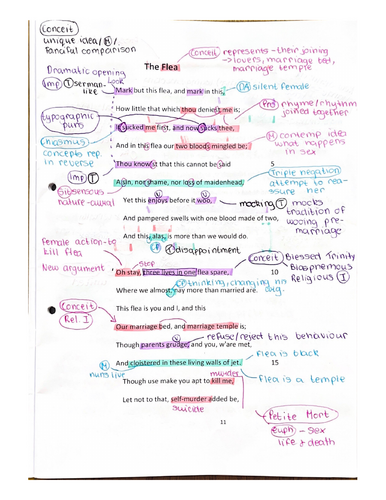 Conceit
unique idea/(M)/.
Fanciful comparison
Conceit represents - their joining
→ lovers, marriage bed,
marriage temple
The Flea
Dramatic opening
Imp (T) sermon-like
Look
Mark but this flea, and mark in this,
DA silent female
How little that which thou deniest me is;
Pro rhyme/rhythm
joined together
typographic
puns
It sucked me first, and now sucks thee,
(M) contemp idea
what happens
in sex
And in this flea our two bloods mingled be;
chiasmus
concepts rep.
in reverse
Thou know'st that this cannot be said
5
Triple negation
attempt to rea-
ssure her
Imp (T)
A sin, nor shame, nor loss of maidenhead,
Sibilance
nature-aural
Yet this enjoys before it woo,
mocking (T) mocks
tradition of
wooing pre-
marriage
And pampered swells with one blood made of two,
And this, alas, is more than we would do.
(T) disappointment
Female action-to
kill flea
New argument
stop
Oh stay, three lives in one flea spare,
10
Conceit Blessed Trinity
Blasphemous
Religious (I)
thinking, changing
arg.
Where we almost, nay more than married are.
Conceit
Rel. I
This flea is you and I, and this
Our marriage bed, and marriage temple is;
refuse/reject this behaviour
Though parents grudge, and you, w'are met,
And cloistered in these living walls of jet.
15
flea is black
(M)
nuns live
murder
Though use make you apt to kill me,
flea is a temple
Let not to that, self-murder added be,
suicide
Petite Mort
euph - sex
life + death
11